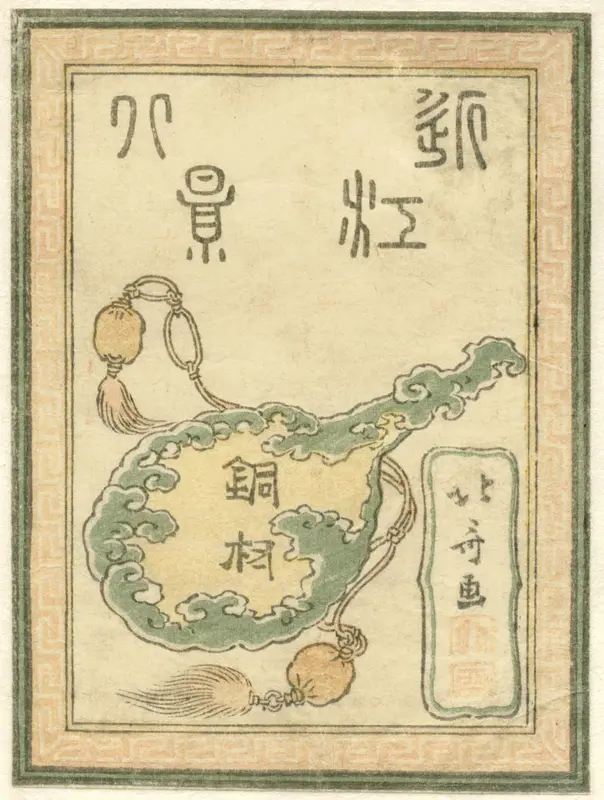 近江
八景
銅板
北斎画